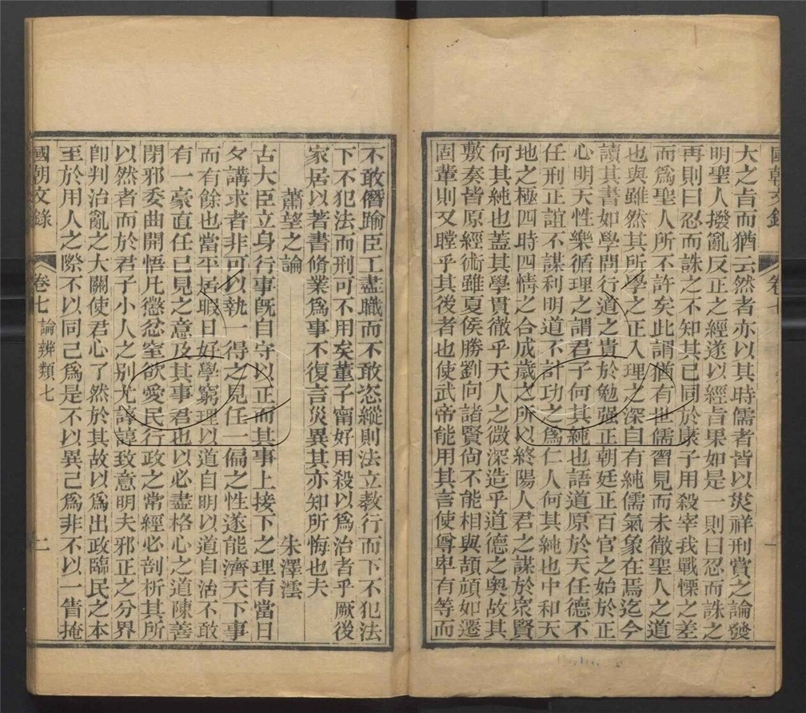 大之言而猶云然者亦以其時儒者皆以災祥刑賞之論發
明聖人撥亂反正之經遂以經旨果如是一則曰忍而誅之
再則曰忍而誅之不知其已同於康子用殺宰我戰慄之差
而爲聖人所不許矣此謂猶有世儒習見而未徹聖人之道
也與雖然其所學之正入理之深自有純儒氣象在焉迄今
讀其書如學問行道之貴於勉强正朝廷正百官之始於正
心明天性樂循理之謂君子何其純也語道原於天任德不
任刑正誼不謀利明道不計功之爲仁人何其純也中和天
地之極四時四情之合成歲之所以終陽人君之謀於衆賢
何其純也蓋其學貫徹乎天人之微深造乎道德之奧故其
敷奏皆原經術雖夏侯勝劉向諸賢尙不能相與頡頏如遷
固輩則又瞠乎其後者也使武帝能用其言使尊卑有等而
國朝文錄
卷七
一
不敢僭踰臣工盡職而不敢恣縱則法立教行而下不犯法
下不犯法而刑可不用矣董子甯好用殺以爲治者乎厥後
家居以著書脩業爲事不復言災異其亦知所悔也夫
蕭望之論
朱澤澐
古大臣立身行事旣自守以正而其事上接下之理有當日
夕講求者非可以執一得之見任一偏之性遂能濟天下事
而有餘也當平居職日好學窮理以道自明以道自治不敢
有一豪直任己見之意及其事君也以必盡格心之道陳善
閉邪委曲開悟凡懲忿窒欲愛民行政之常經必剖析其所
以然者而於君子小人之別尤諄諄致意明夫邪正之分界
卽判治亂之大關使君心了然於其故以爲出政臨民之本
至於用人之際不以同己爲是不以異己爲非不以一眚掩
國朝文錄
卷七 論辨類七
二